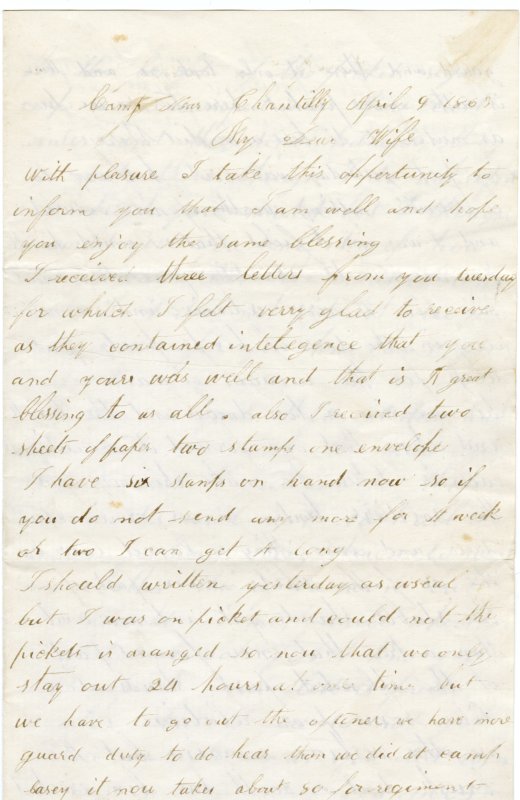 Camp Near Chantilly April 9 1863
My Dear Wife
With plasure I take this oppertunity to
inform you that I am well and hope
you enjoy the same blessing
I received three letters from you tuesday
for whitch I felt verry glad to receive
as they contained intelegence that you
and yours was well and that is A great
blessing to us all. also I received two
sheets of paper two stamps one envelope
I have six stamps on hand now so if
you do not send any more for A week
or two I can get A long
I should written yesterday as useal
but I was on picket and could not the
pickets is aranged so now that we only
stay out 24 hours a time but
we have to go out the oftener we have more
guard duty to do hear than we did at camp
Casey it now takes about 80 for regiment